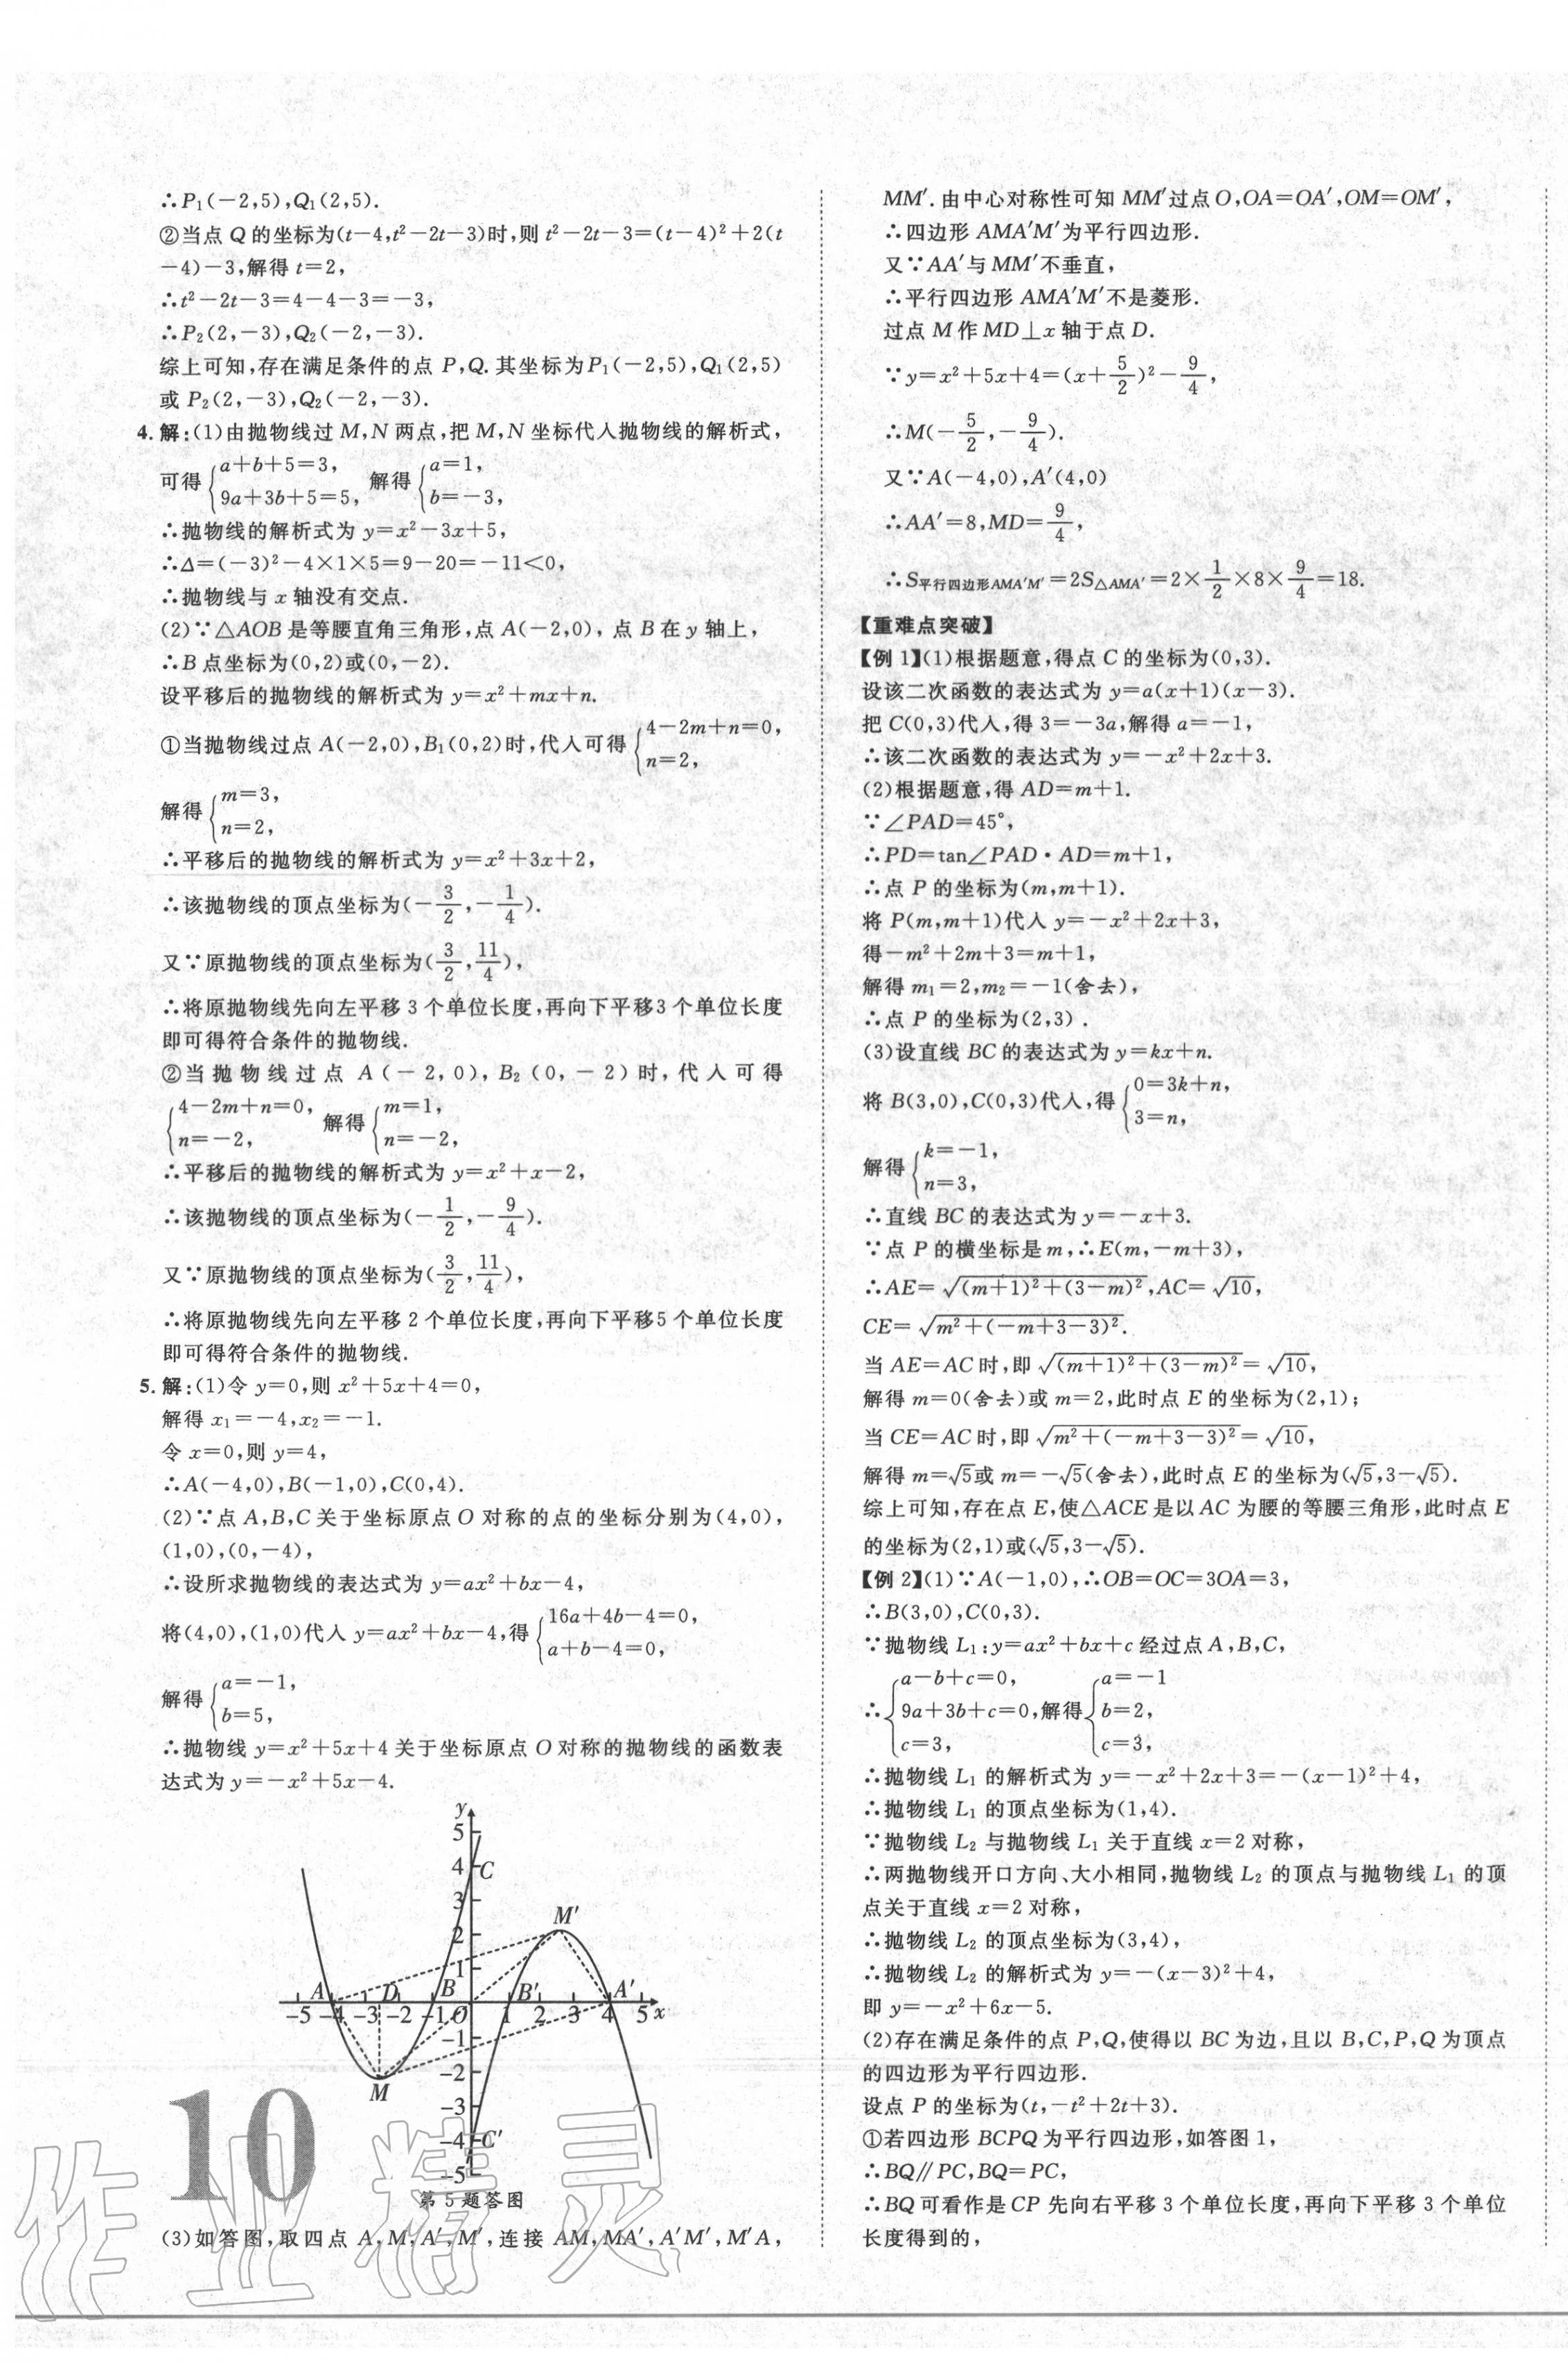 ∴P₁(－2,5),Q₁(2,5).
②当点 Q 的坐标为(t－4,t²－2t－3)时,则 t²－2t－3＝(t－4)²＋2(t
－4)－3,解得 t＝2,
∴t²－2t－3＝4－4－3＝－3,
∴P₂(2,－3),Q₂(－2,－3).
综上可知,存在满足条件的点 P,Q.其坐标为P₁(－2,5),Q₁(2,5)
或 P₂(2,－3),Q₂(－2,－3).
4.解:(1)由抛物线过 M,N 两点,把 M,N 坐标代入抛物线的解析式,
可得{a＋b＋5＝3, 9a＋3b＋5＝5, 解得{a＝1, b＝－3,
∴抛物线的解析式为 y＝x²－3x＋5,
∴Δ＝(－3)²－4×1×5＝9－20＝－11<0,
∴抛物线与 x 轴没有交点.
(2)∵△AOB 是等腰直角三角形,点 A(－2,0),点 B 在 y 轴上,
∴B 点坐标为(0,2)或(0,－2).
设平移后的抛物线的解析式为 y＝x²＋mx＋n.
①当抛物线过点 A(－2,0),B₁(0,2)时,代入可得{4－2m＋n＝0, n＝2,
解得{m＝3, n＝2,
∴平移后的抛物线的解析式为 y＝x²＋3x＋2,
∴该抛物线的顶点坐标为(－3/2,－1/4).
又∵原抛物线的顶点坐标为(3/2,11/4),
∴将原抛物线先向左平移 3 个单位长度,再向下平移3 个单位长度
即可得符合条件的抛物线.
②当抛物线过点 A(－2,0),B₂(0,－2)时,代入可得
{4－2m＋n＝0, n＝－2, 解得{m＝1, n＝－2,
∴平移后的抛物线的解析式为 y＝x²＋x－2,
∴该抛物线的顶点坐标为(－1/2,－9/4).
又∵原抛物线的顶点坐标为(3/2,11/4),
∴将原抛物线先向左平移 2 个单位长度,再向下平移5 个单位长度
即可得符合条件的抛物线.
5.解:(1)令 y＝0,则 x²＋5x＋4＝0,
解得 x₁＝－4,x₂＝－1.
令 x＝0,则 y＝4,
∴A(－4,0),B(－1,0),C(0,4).
(2)∵点 A,B,C 关于坐标原点 O 对称的点的坐标分别为(4,0),
(1,0),(0,－4),
∴设所求抛物线的表达式为 y＝ax²＋bx－4,
将(4,0),(1,0)代入 y＝ax²＋bx－4,得{16a＋4b－4＝0, a＋b－4＝0,
解得{a＝－1, b＝5,
∴抛物线 y＝x²＋5x＋4 关于坐标原点 O 对称的抛物线的函数表
达式为 y＝－x²＋5x－4.
y
5
4 C
3
M′
2
1
A D B B′ A′
－5 －4 －3 －2 －1 O 1 2 3 4 5 x
－1
－2
M
－3
－4 C′
－5
第 5 题答图
10
作业精灵
(3)如答图,取四点 A,M,A′,M′,连接 AM,MA′,A′M′,M′A,
MM′.由中心对称性可知 MM′过点 O,OA＝OA′,OM＝OM′,
∴四边形 AMA′M′为平行四边形.
又∵AA′与 MM′不垂直,
∴平行四边形 AMA′M′不是菱形.
过点 M 作 MD⊥x 轴于点 D.
∵y＝x²＋5x＋4＝(x＋5/2)²－9/4,
∴M(－5/2,－9/4).
又∵A(－4,0),A′(4,0)
∴AA′＝8,MD＝9/4,
∴S平行四边形AMA′M′＝2S△AMA′＝2×1/2×8×9/4＝18.
【重难点突破】
【例 1】(1)根据题意,得点 C 的坐标为(0,3).
设该二次函数的表达式为 y＝a(x＋1)(x－3).
把 C(0,3)代入,得 3＝－3a,解得 a＝－1,
∴该二次函数的表达式为 y＝－x²＋2x＋3.
(2)根据题意,得 AD＝m＋1.
∵∠PAD＝45°,
∴PD＝tan∠PAD·AD＝m＋1,
∴点 P 的坐标为(m,m＋1).
将 P(m,m＋1)代入 y＝－x²＋2x＋3,
得－m²＋2m＋3＝m＋1,
解得 m₁＝2,m₂＝－1(舍去),
∴点 P 的坐标为(2,3).
(3)设直线 BC 的表达式为 y＝kx＋n.
将 B(3,0),C(0,3)代入,得{0＝3k＋n, 3＝n,
解得{k＝－1, n＝3,
∴直线 BC 的表达式为 y＝－x＋3.
∵点 P 的横坐标是 m,∴E(m,－m＋3),
∴AE＝√((m＋1)²＋(3－m)²),AC＝√10,
CE＝√(m²＋(－m＋3－3)²).
当 AE＝AC 时,即√((m＋1)²＋(3－m)²)＝√10,
解得 m＝0(舍去)或 m＝2,此时点 E 的坐标为(2,1);
当 CE＝AC 时,即√(m²＋(－m＋3－3)²)＝√10,
解得 m＝√5或 m＝－√5(舍去),此时点 E 的坐标为(√5,3－√5).
综上可知,存在点 E,使△ACE 是以 AC 为腰的等腰三角形,此时点 E
的坐标为(2,1)或(√5,3－√5).
【例 2】(1)∵A(－1,0),∴OB＝OC＝3OA＝3,
∴B(3,0),C(0,3).
∵抛物线 L₁:y＝ax²＋bx＋c 经过点 A,B,C,
∴{a－b＋c＝0, 9a＋3b＋c＝0, c＝3, 解得{a＝－1 b＝2, c＝3,
∴抛物线 L₁ 的解析式为 y＝－x²＋2x＋3＝－(x－1)²＋4,
∴抛物线 L₁ 的顶点坐标为(1,4).
∵抛物线 L₂ 与抛物线 L₁ 关于直线 x＝2 对称,
∴两抛物线开口方向、大小相同,抛物线 L₂ 的顶点与抛物线 L₁ 的顶
点关于直线 x＝2 对称,
∴抛物线 L₂ 的顶点坐标为(3,4),
∴抛物线 L₂ 的解析式为 y＝－(x－3)²＋4,
即 y＝－x²＋6x－5.
(2)存在满足条件的点 P,Q,使得以 BC 为边,且以 B,C,P,Q 为顶点
的四边形为平行四边形.
设点 P 的坐标为(t,－t²＋2t＋3).
①若四边形 BCPQ 为平行四边形,如答图 1,
∴BQ∥PC,BQ＝PC,
∴BQ 可看作是 CP 先向右平移 3 个单位长度,再向下平移 3 个单位
长度得到的,